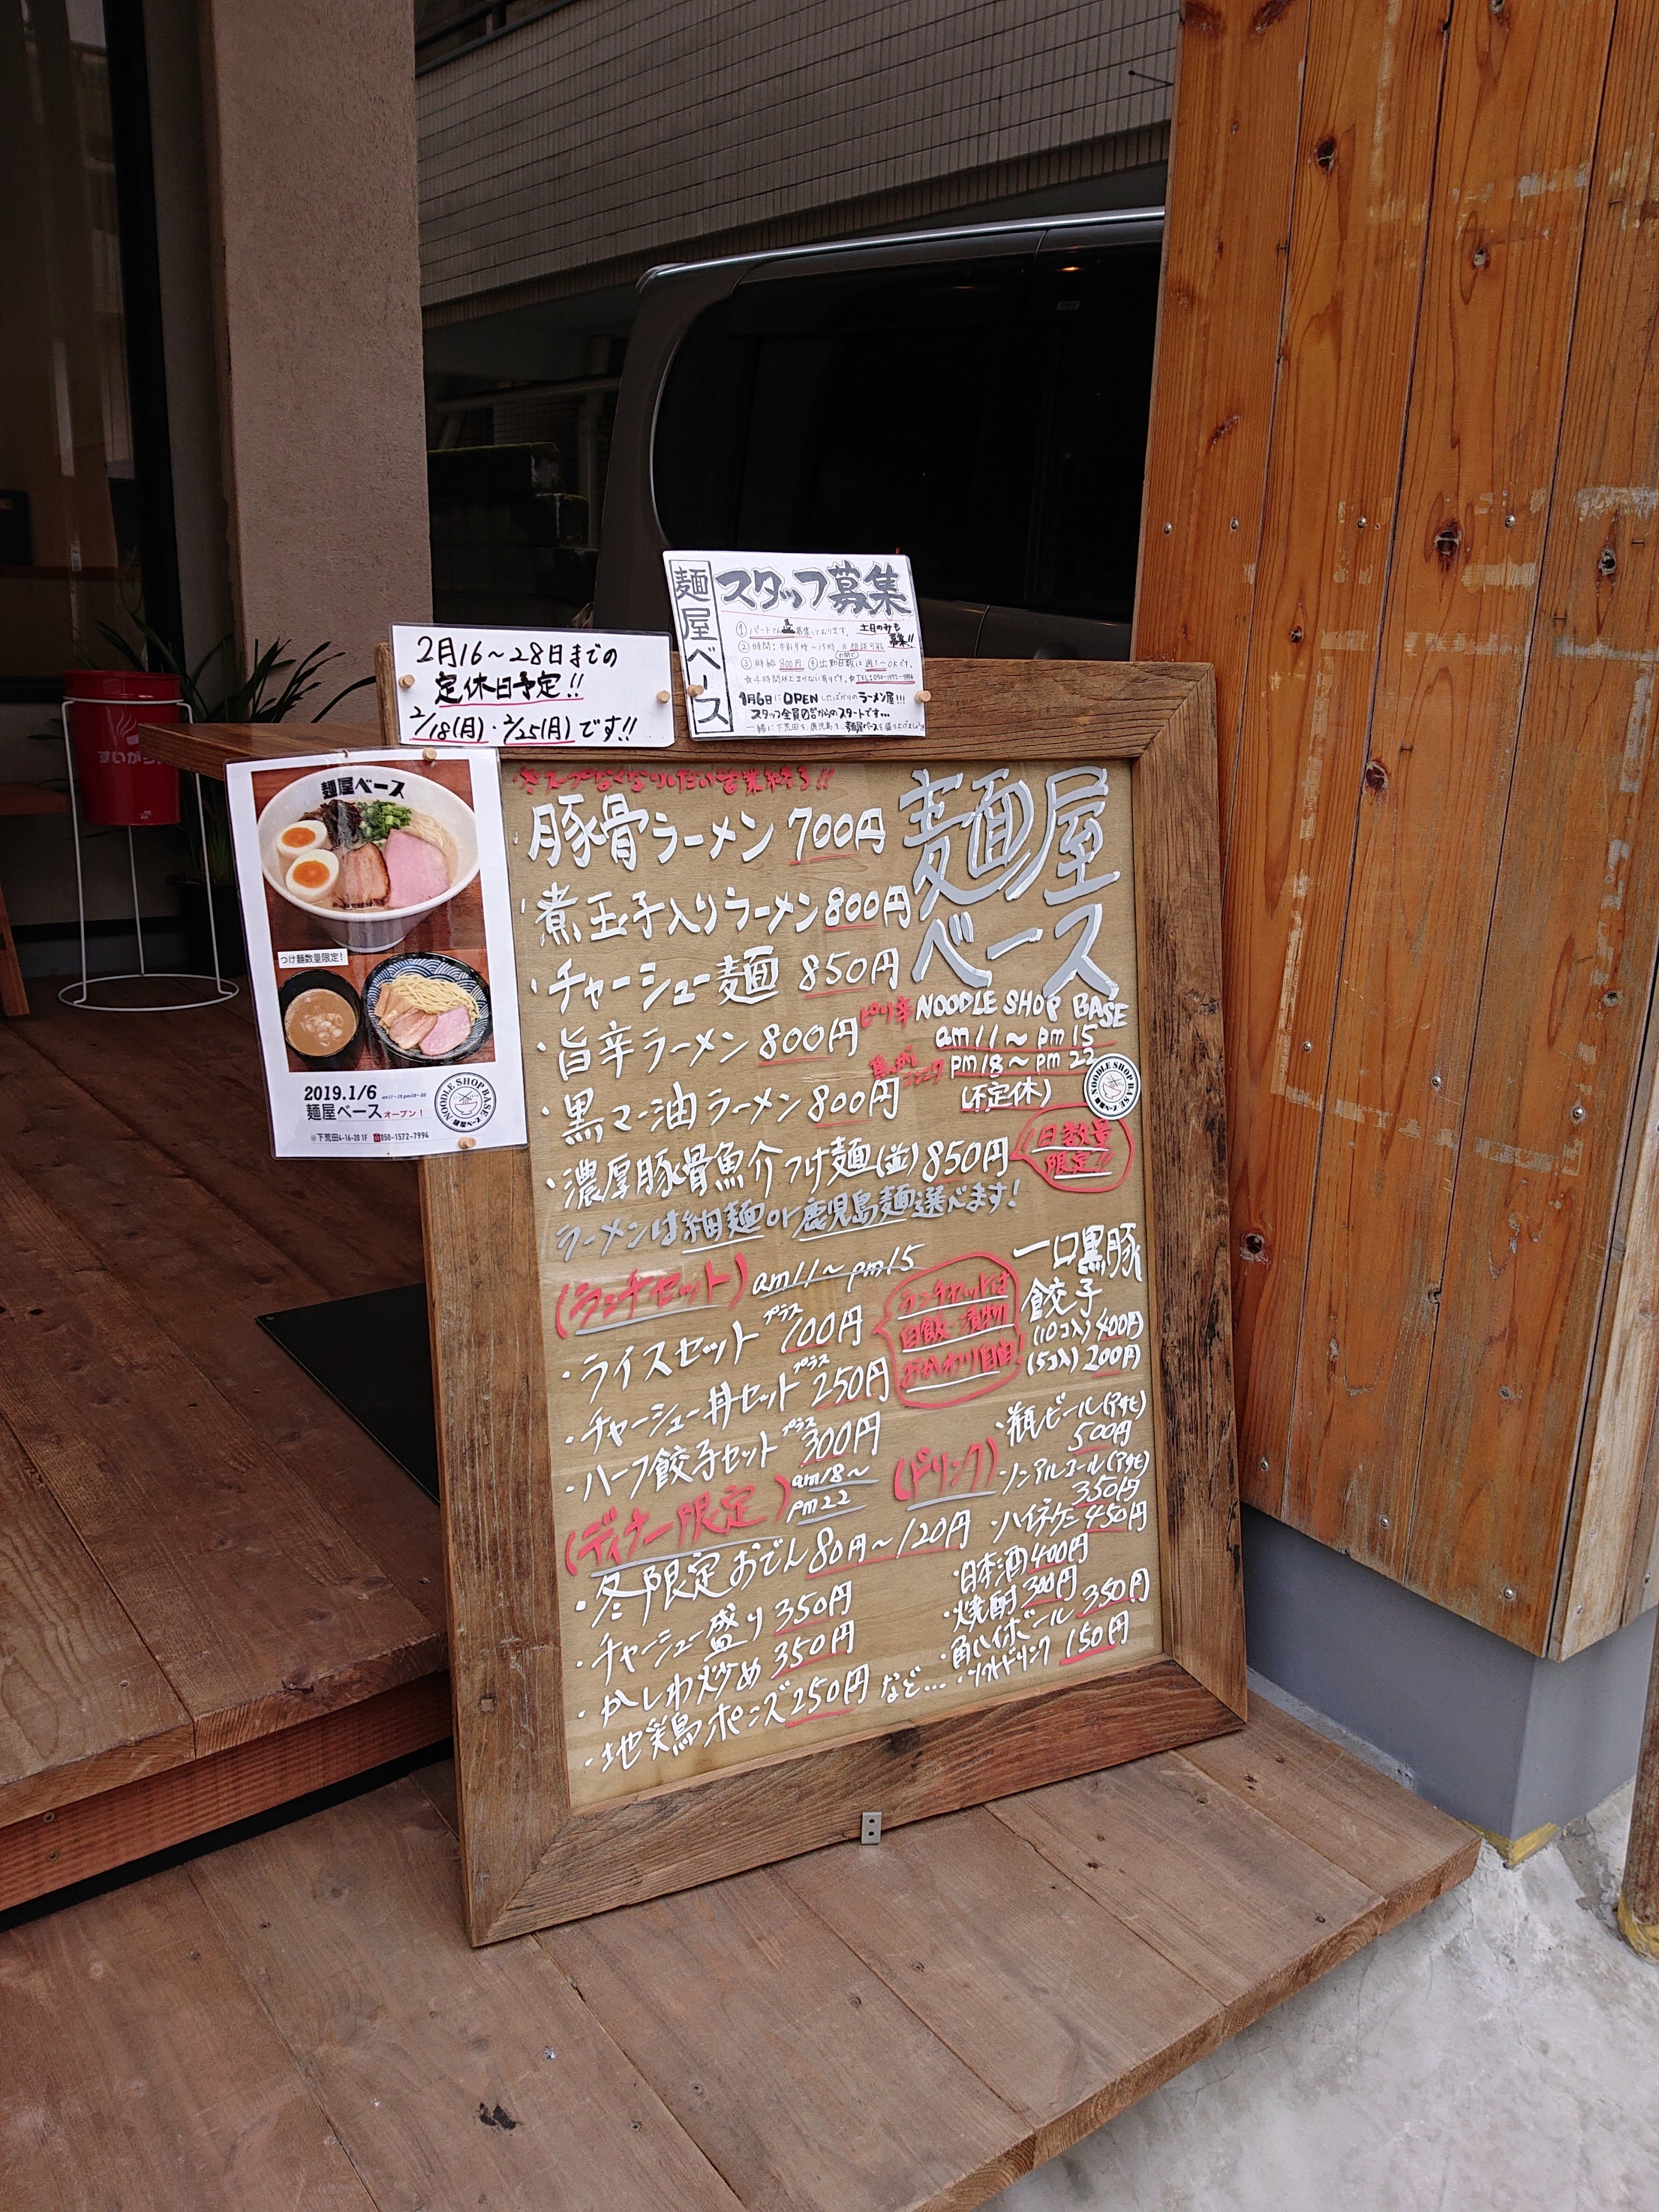 2月16〜28日までの
定休日予定!!
2/18(月)・2/25(月)です!!
麺屋ベース
スタッフ募集
①パートさん募集しております。 土日のみも
募集!!
②時間:午前9時〜15時 ※相談可能
③時給800円 ④出勤日数は週1〜OKです。
TEL:050-1572-7994
1月6日にOPENしたばかりのラーメン屋!!!
スタッフ全員0からのスタートです…
すいがら
麺屋ベース
つけ麺数量限定!
2019.1/6
麺屋ベースオープン!
下荒田4-16-20 1F ☎050-1572-7994
NOODLE SHOP BASE
麺屋ベース
※スープなくなりしだい営業終了!!
・豚骨ラーメン 700円
・煮玉子入りラーメン 800円
・チャーシュー麺 850円
・旨辛ラーメン 800円 ピリ辛
・黒マー油ラーメン 800円 焦がしニンニク
・濃厚豚骨魚介つけ麺(並) 850円
日数量
限定!!
ラーメンは細麺or鹿児島麺選べます!
麺屋
ベース
NOODLE SHOP BASE
am11〜pm15
pm18〜pm22
(不定休)
NOODLE SHOP BASE
麺屋ベース
(ランチセット) am11〜pm15
・ライスセット プラス100円
・チャーシュー丼セット プラス250円
・ハーフ餃子セット プラス300円
ランチセットは
白飯・漬物
おかわり自由!
一口黒豚
餃子
(10コ入) 400円
(5コ入) 200円
(ディナー限定) am18〜
pm22
・冬限定おでん 80円〜120円
・チャーシュー盛り 350円
・かしわ炒め 350円
・地鶏ポンズ 250円 など…
(ドリンク)
・瓶ビール(アサヒ)
500円
・ノンアルコール(アサヒ)
350円
・ハイネケン 450円
・日本酒 400円
・焼酎 300円
・角ハイボール 350円
・ソフトドリンク 150円